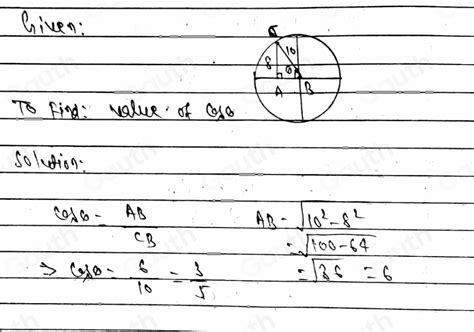 Given:
C
10
8
θ
A B
To Find: value of cosθ
Solution:
cosθ = AB / CB
AB = √10² - 8²
= √100 - 64
⇒ cosθ = 6 / 10 = 3 / 5
= √36 = 6